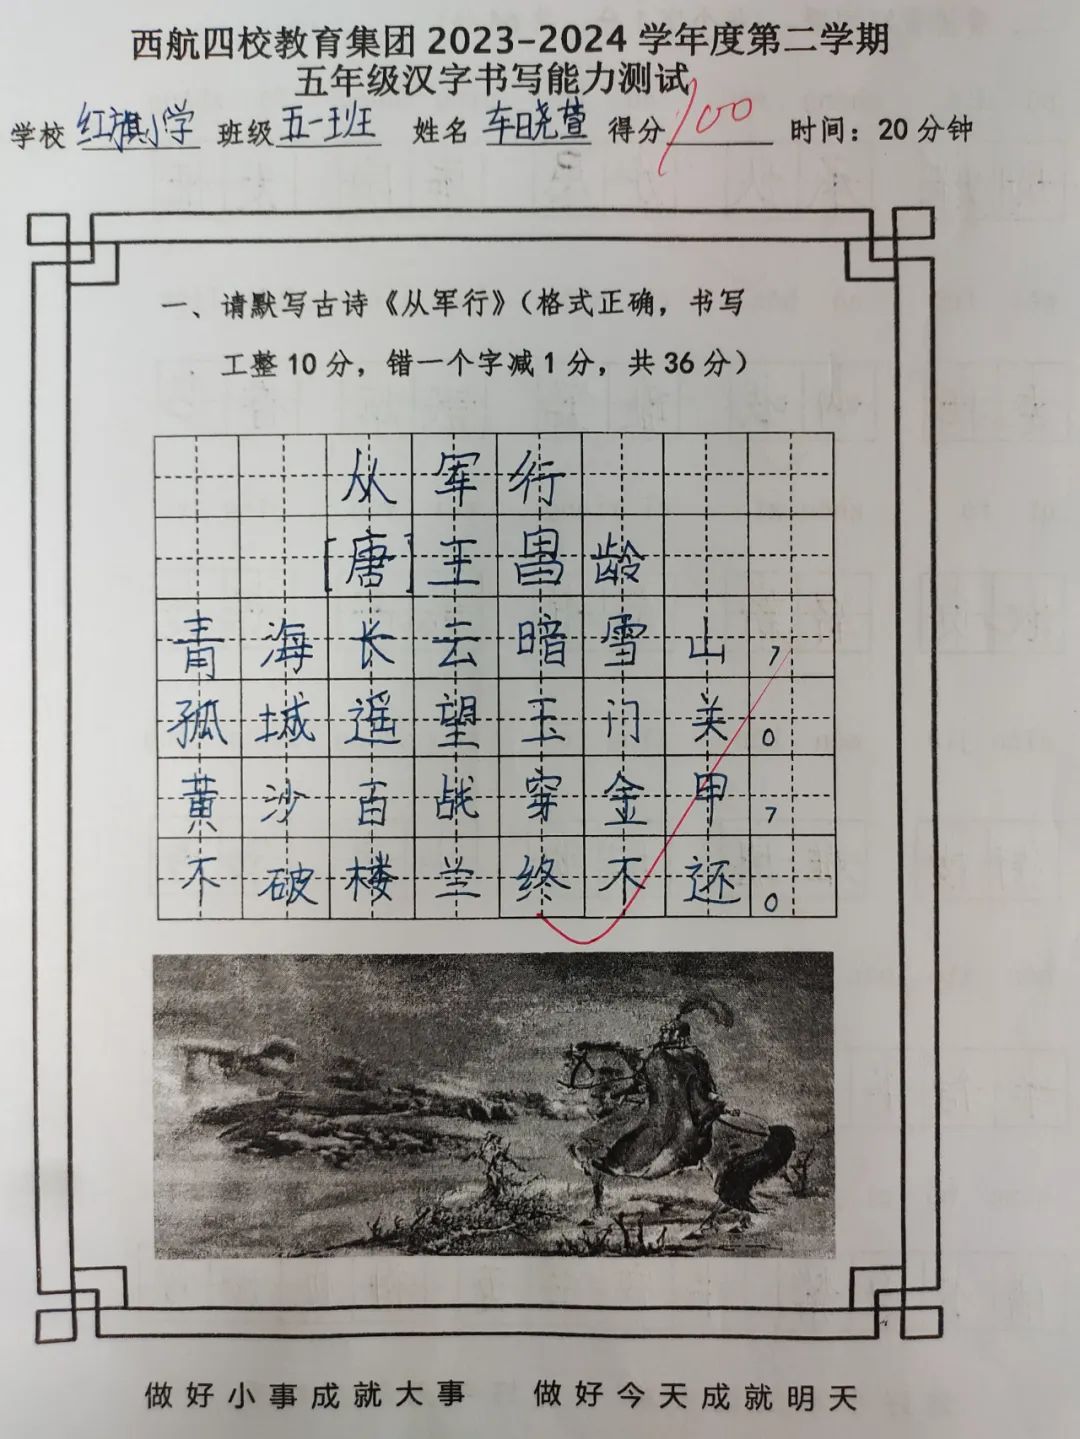 西航四校教育集团 2023-2024 学年度第二学期
五年级汉字书写能力测试
学校 红旗小学 班级 五一班 姓名 车晓萱 得分 100 时间：20 分钟
一、请默写古诗《从军行》（格式正确，书写
工整 10 分，错一个字减 1 分，共 36 分）
从军行
[唐]王昌龄
青海长云暗雪山，
孤城遥望玉门关。
黄沙百战穿金甲，
不破楼兰终不还。
做好小事成就大事 做好今天成就明天